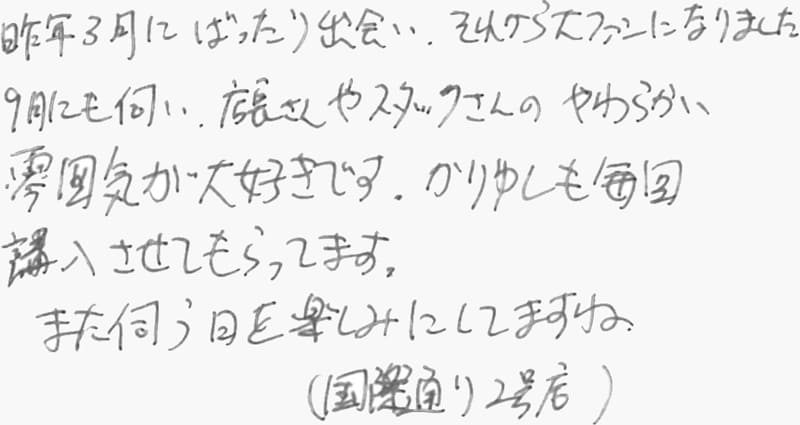 昨年3月にばったり出会い、それから大ファンになりました
9月にも伺い、店長さんやスタッフさんのやわらかい
雰囲気が大好きです。かりゆしも毎回
購入させてもらってます。
また伺う日を楽しみにしてますね。
(国際通り2号店)